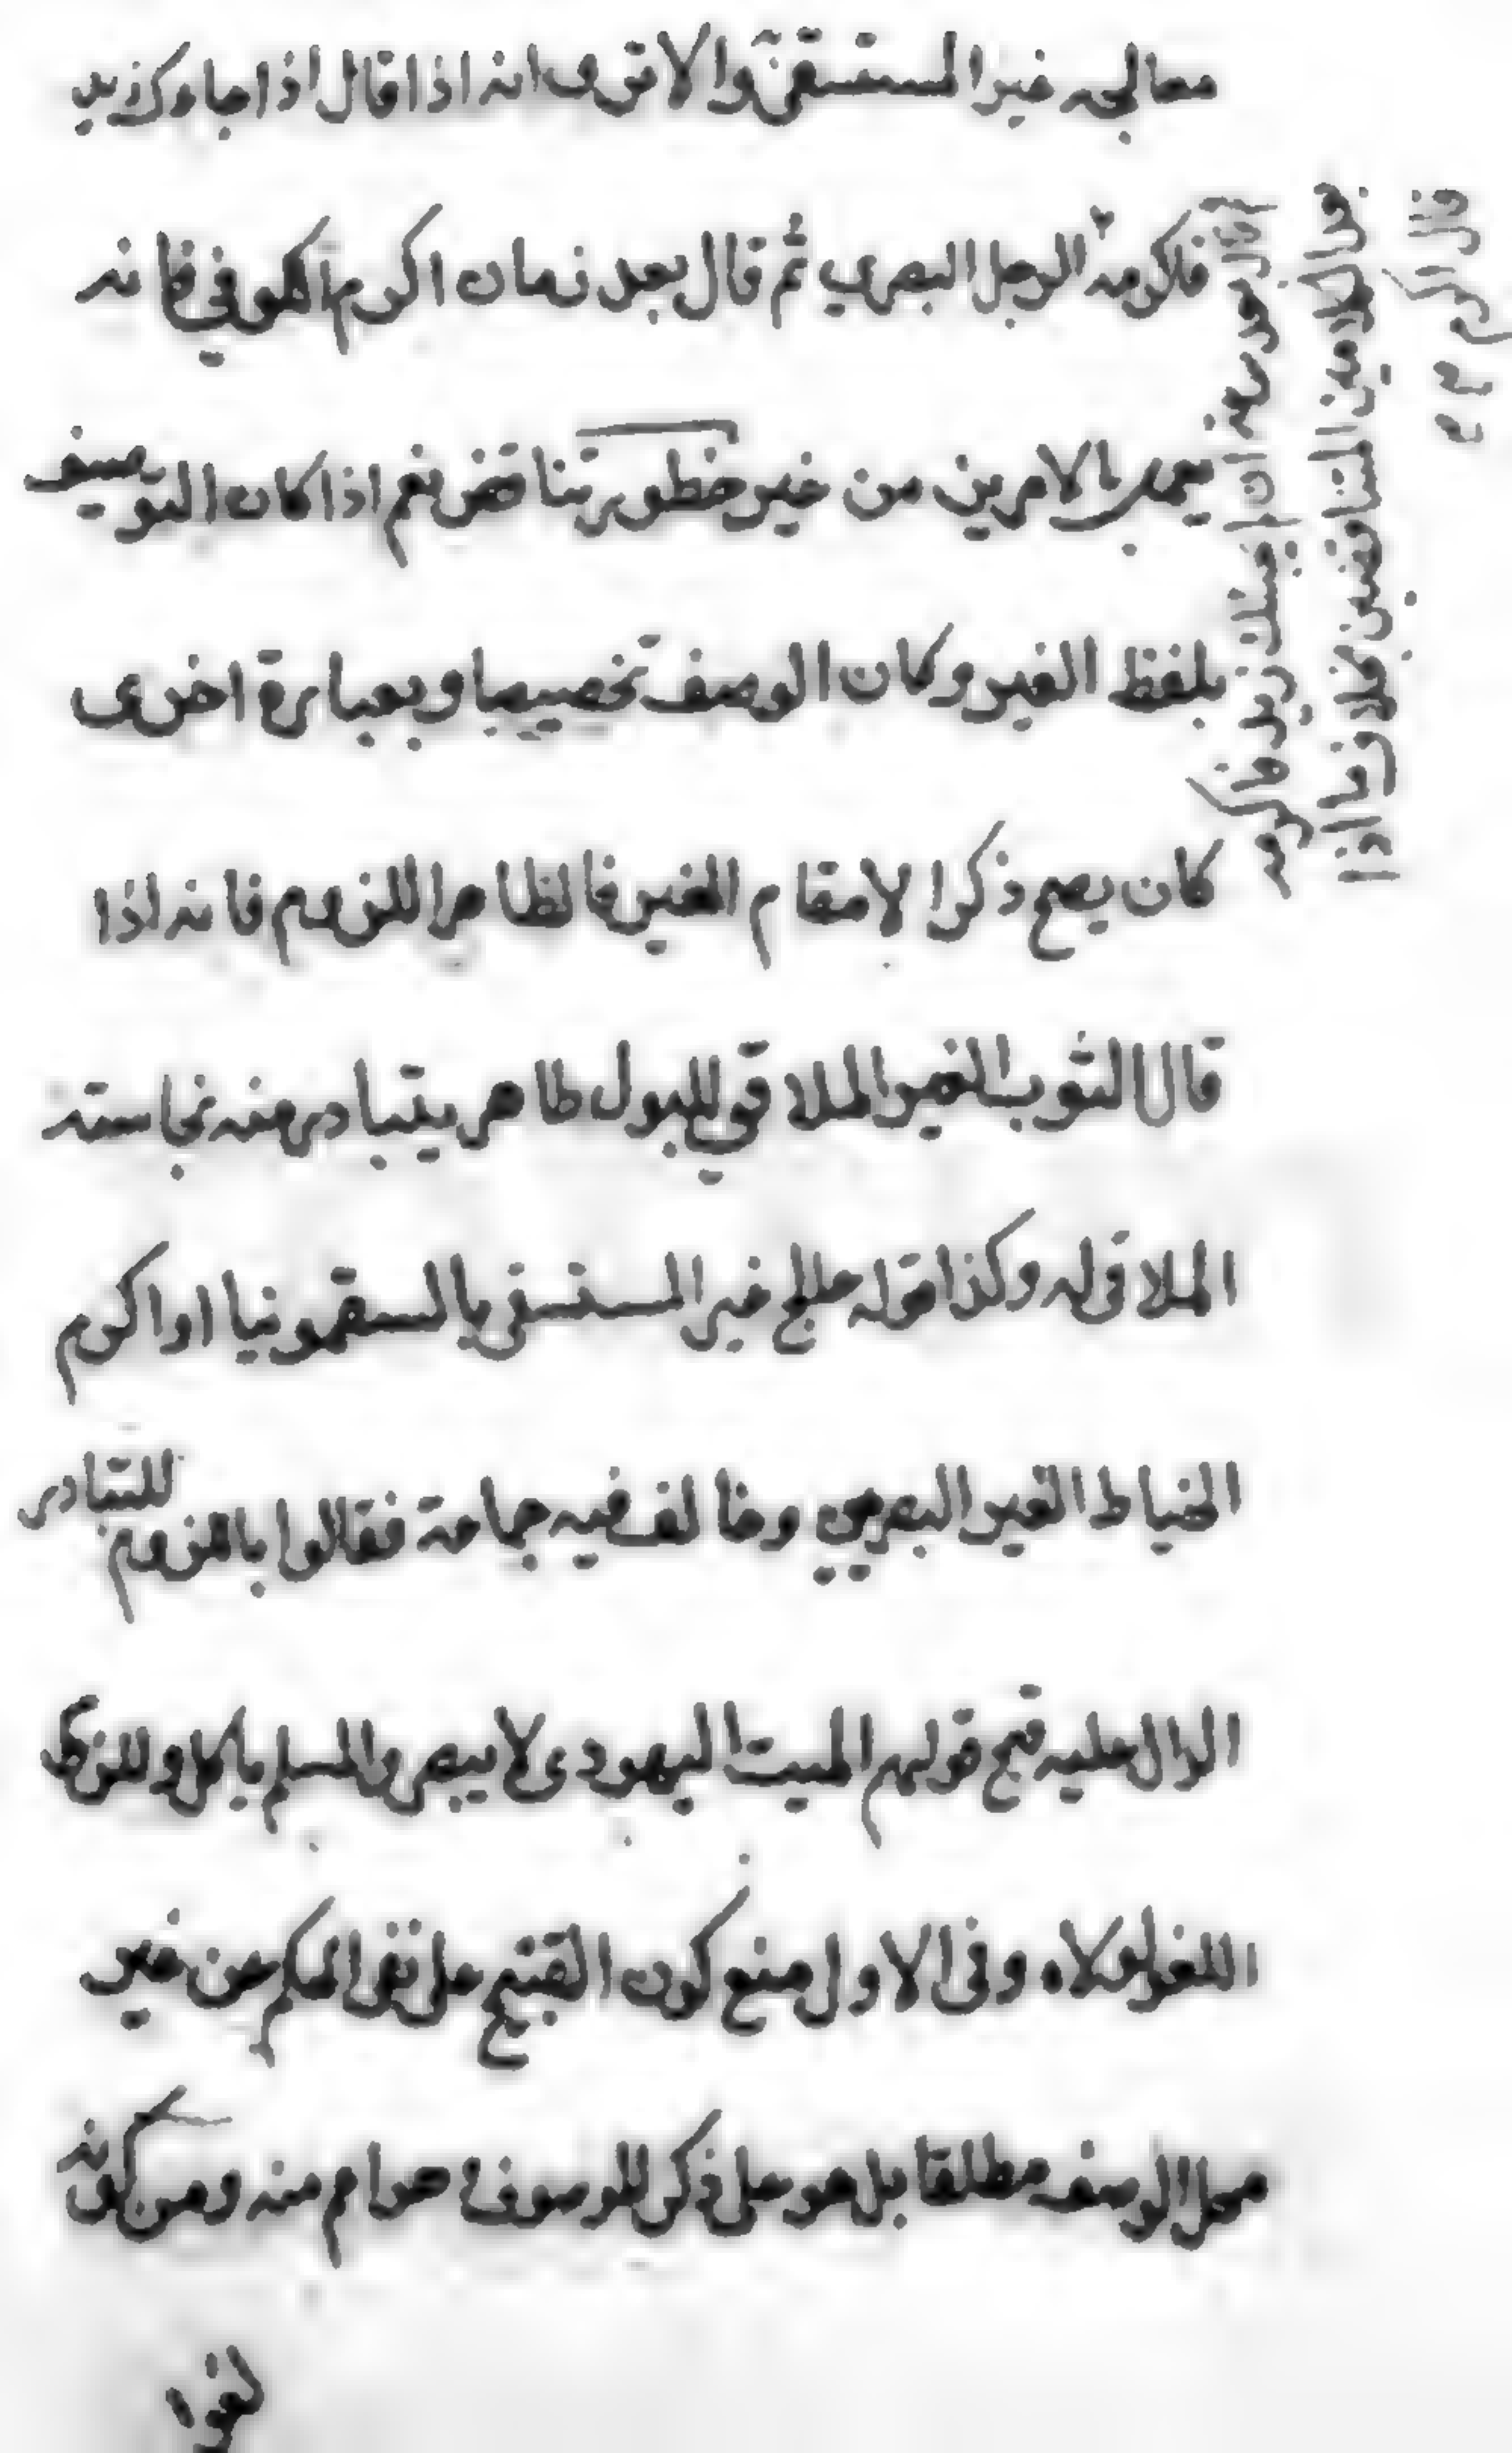 معالجه غير المستسقى والا ترى انه اذا قال اذا جاءك زيد
فاكرمه الرجل البصري ثم قال بعد زمان اكرم الكوفي فانه
يعمل بالامرين من غير خطور تناقض نعم اذا كان التوصيف
بلفظ الغير وكان الوصف تخصيصا وبعبارة اخرى
كان يصح ذكر الا مقام الغير فالظاهر اللزوم فانه اذا
قال الثوب الغير الملاقي للبول طاهر يتبادر منه نجاسته
الملاقي له وكذا قوله عالج غير المستسقي بالسقمونيا او اكرم
الخياط الغير البصري وخالف فيه جماعة فقالوا باللزوم للتبادر
الدال عليه قبح قولهم الميت اليهودى لا يبصر والمسلم ياكل وللزوم
اللغو لولاه وفى الاول منع كون القبح على نفى الحكم عن غير
محل الوصف مطلقا بل هو على ذكر الموصوف عوام منه ومن كونه
لغوا
بعد
ان جائك زيد فاكرمه
الكلامين المتناقضين بخلاف ما اذا
قال اكرم